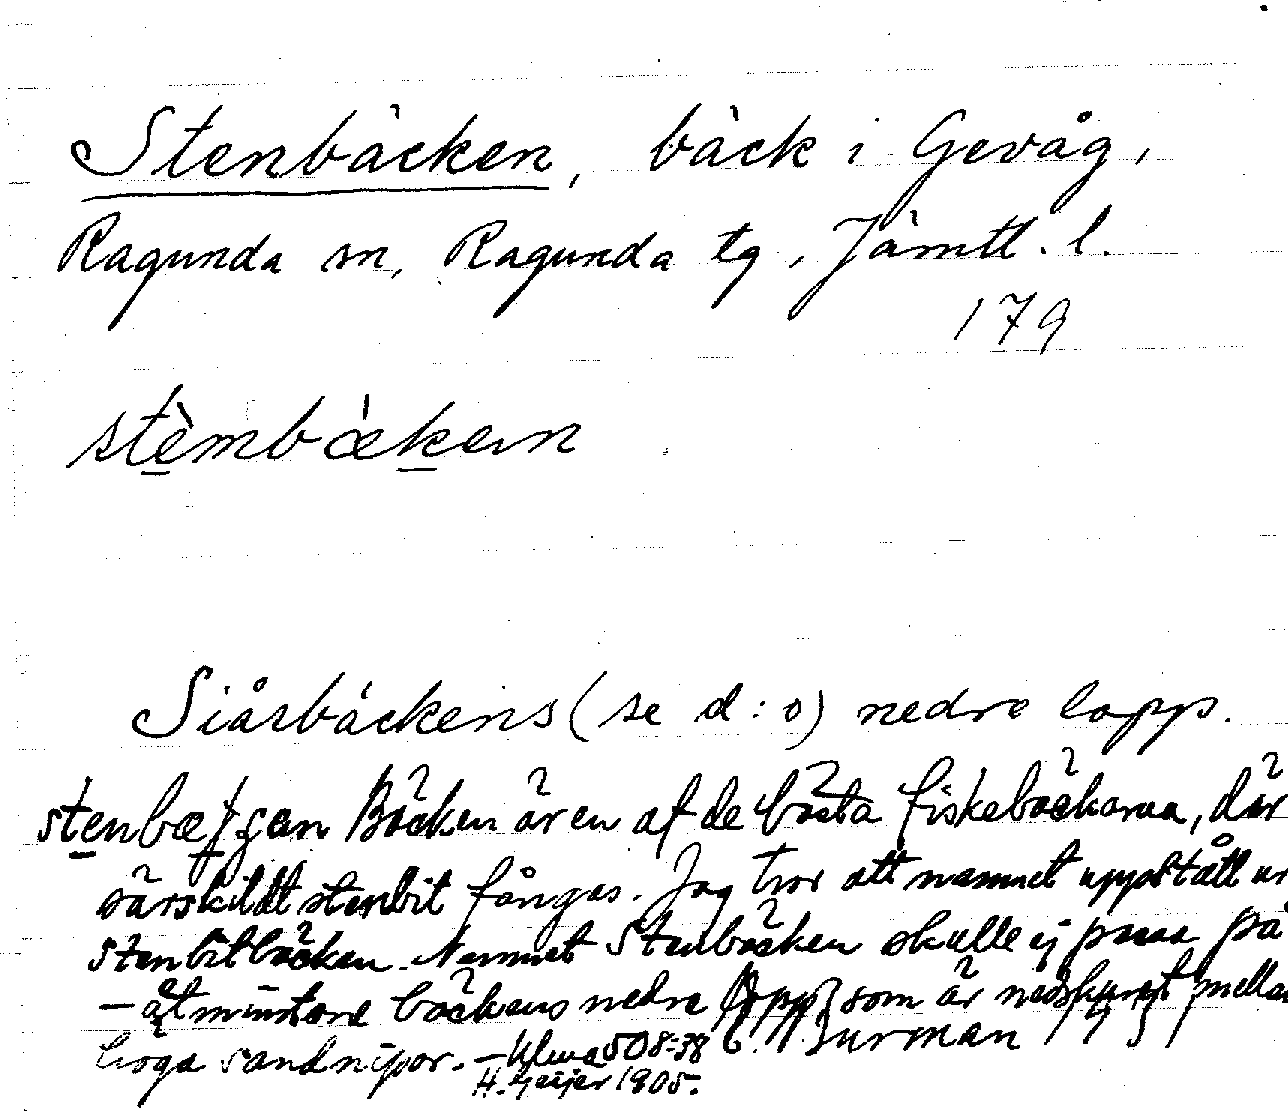 Stenbäcken, bäck i Gevåg,
Ragunda sn, Ragunda tg, Jämtl. l.
179
stèmbækan
Siåsbäckens (se d:o) nedre lopp.
Bäcken är en af de bästa fiskebäckarna, där
särskildt stenbit fångas. Jag tror att namnet uppstått ur
stenbitbäcken. Namnet Stenbäcken skulle ej passa på
– åtminstone bäckens nedre lopp, som är nedskuret mellan
höga sandnipor. – Ulma 508:38
H. Geijer 1905.